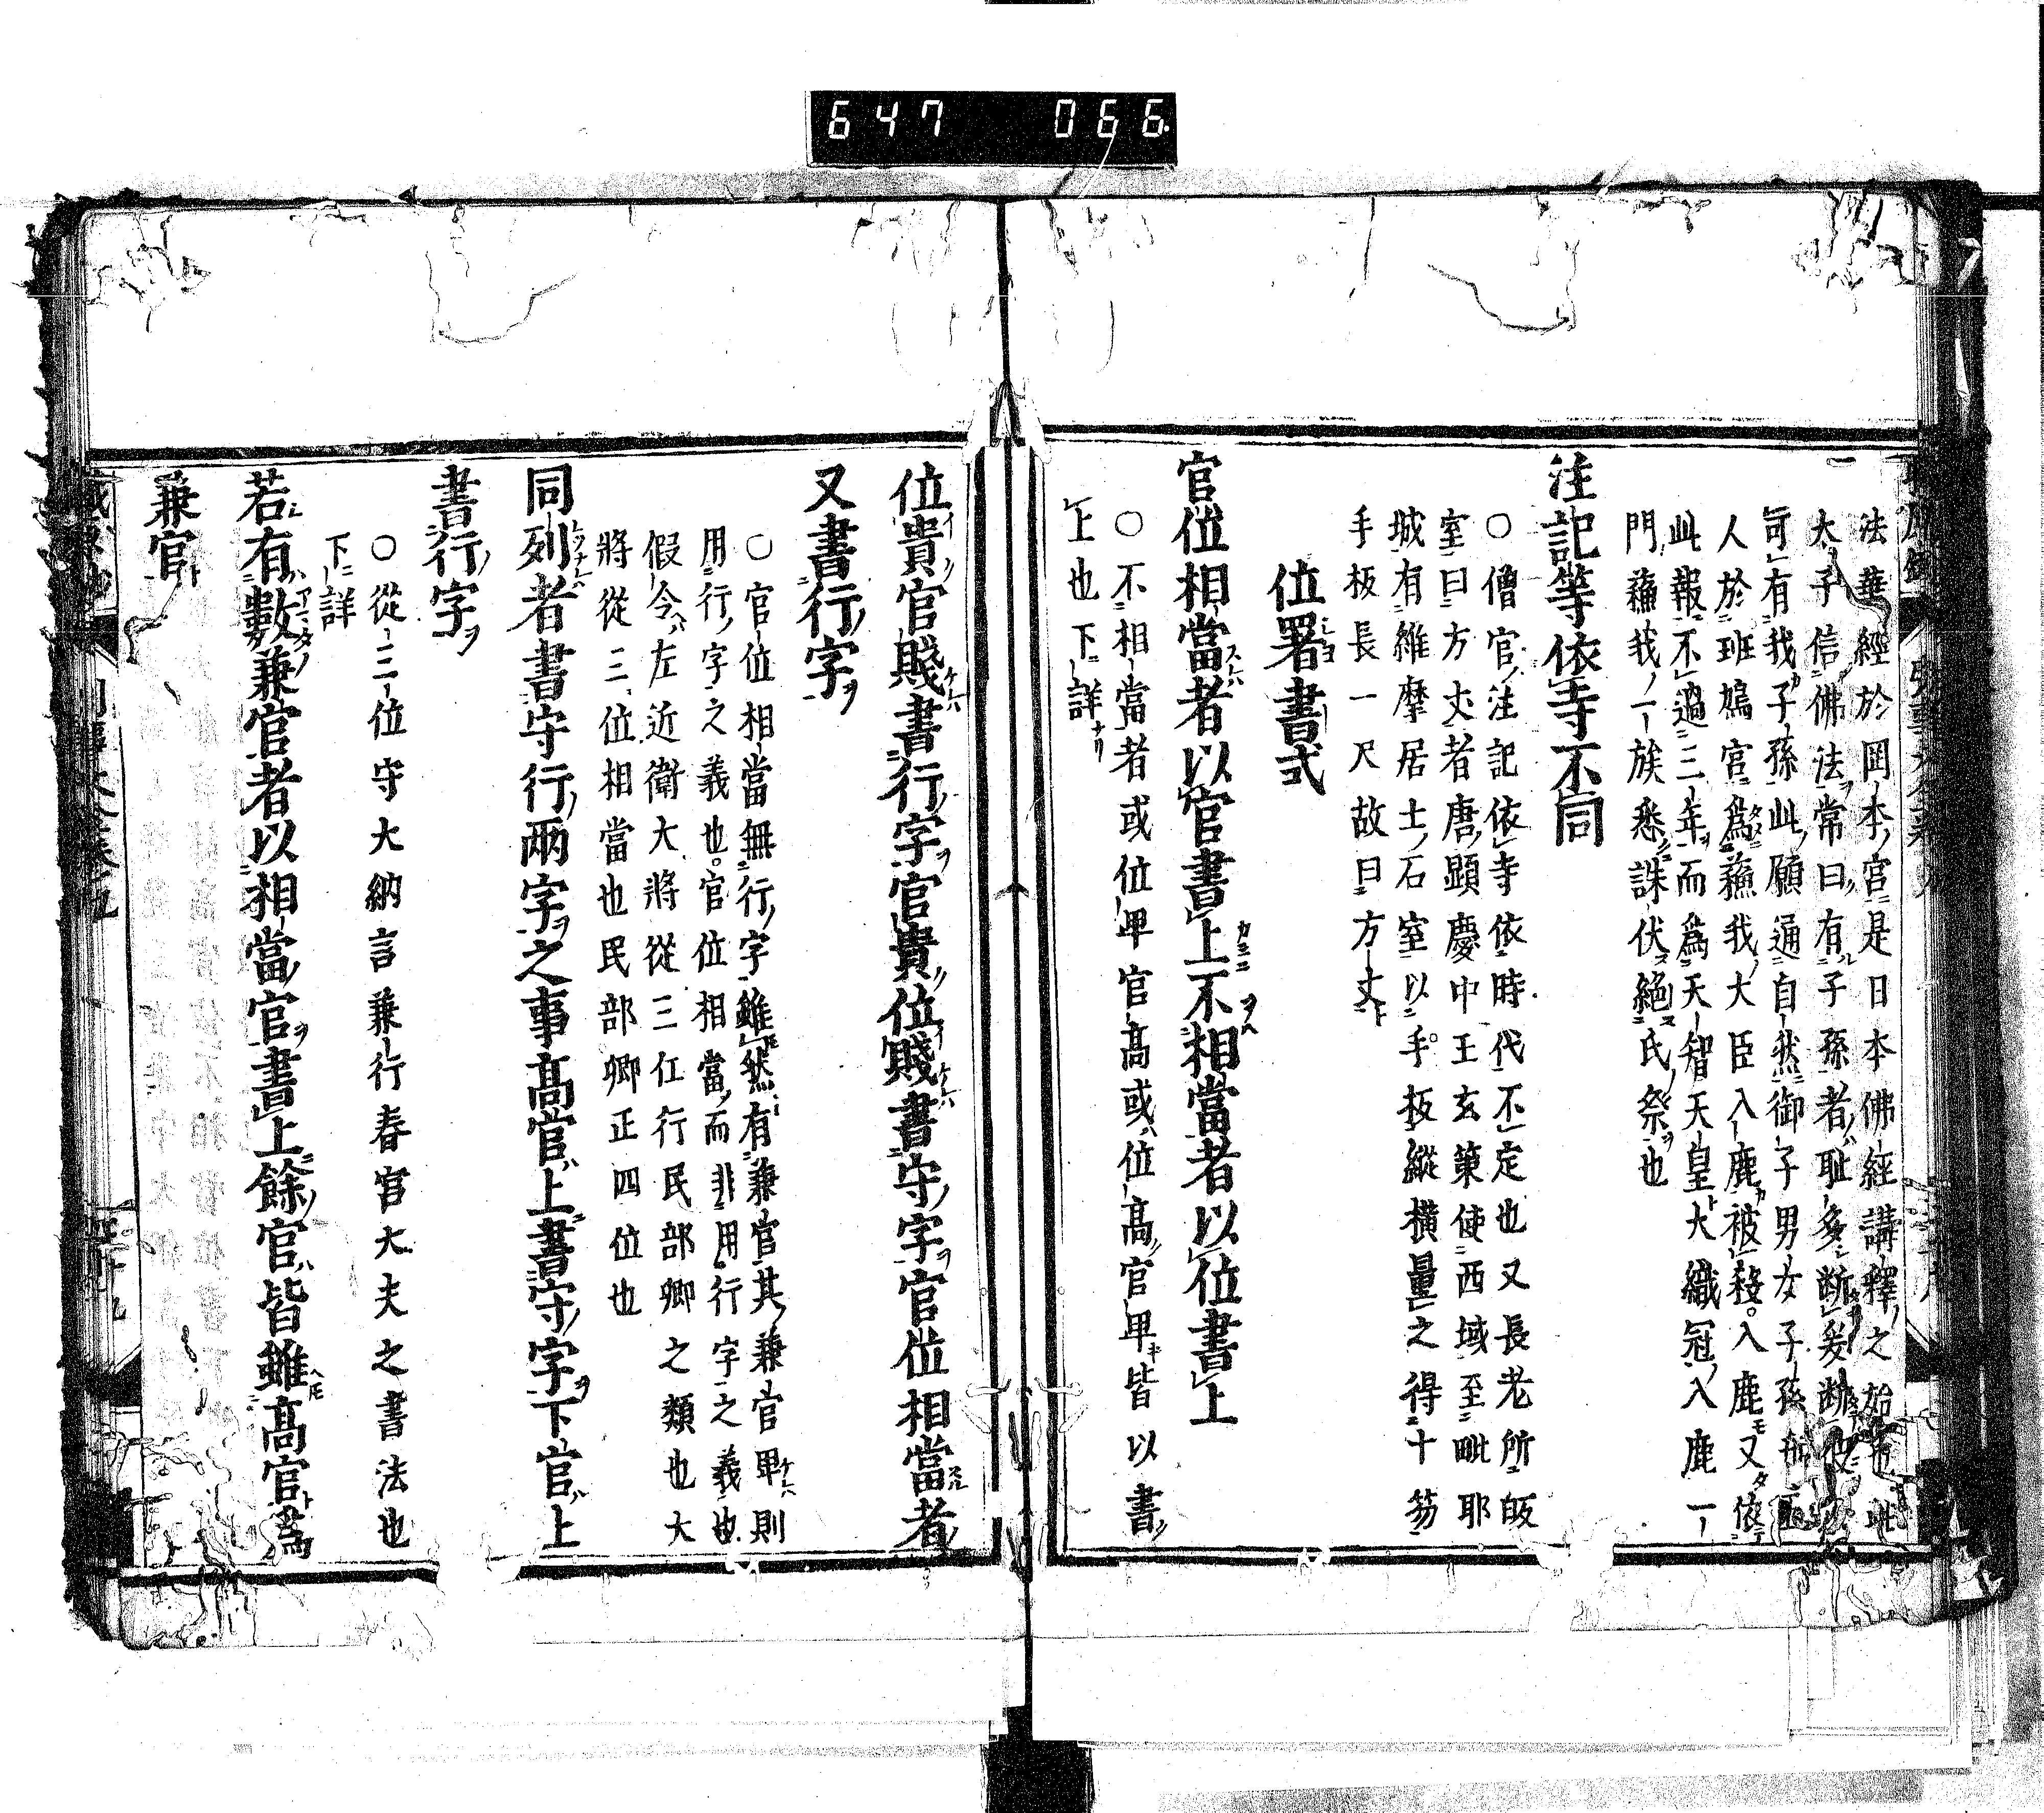 647 066
法華經於岡本宮是日本佛經講釋之始也
太子信佛法常曰有子孫者恥多斷爰斷
可有我子孫此願通自然御子男女子孫
人於班鳩官爲蘓我大臣入鹿被殺入鹿又依
此報不過三年而爲天智天皇大織冠入鹿一
門蘓我一族悉誅伏絕氏祭也
注記等依寺不同
○僧官注記依寺依時代不定也又長老所
室曰方丈者唐顯慶中王玄策使西域至毗耶
城有維摩居士石室以手板縱橫量之得十笏
手板長一尺故曰方丈
位署書式
官位相當者以官書上不相當者以位書上
○不相當者或位卑官高或位高官卑皆以書
上也下詳
位貴官賤書行字官貴位賤書守字官位相當者
又書行字
○官位相當無行字雖然有兼官其兼官卑則
用行字之義也官位相當而非用行字之義也
假令左近衛大將從三位行民部卿之類也大
將從三位相當也民部卿正四位也
同列者書守行兩字之事高官上書守字下官上
書行字
○從三位守大納言兼行春宮大夫之書法也
下詳
若有數兼官者以相當官書上餘官皆雖高官爲
兼官